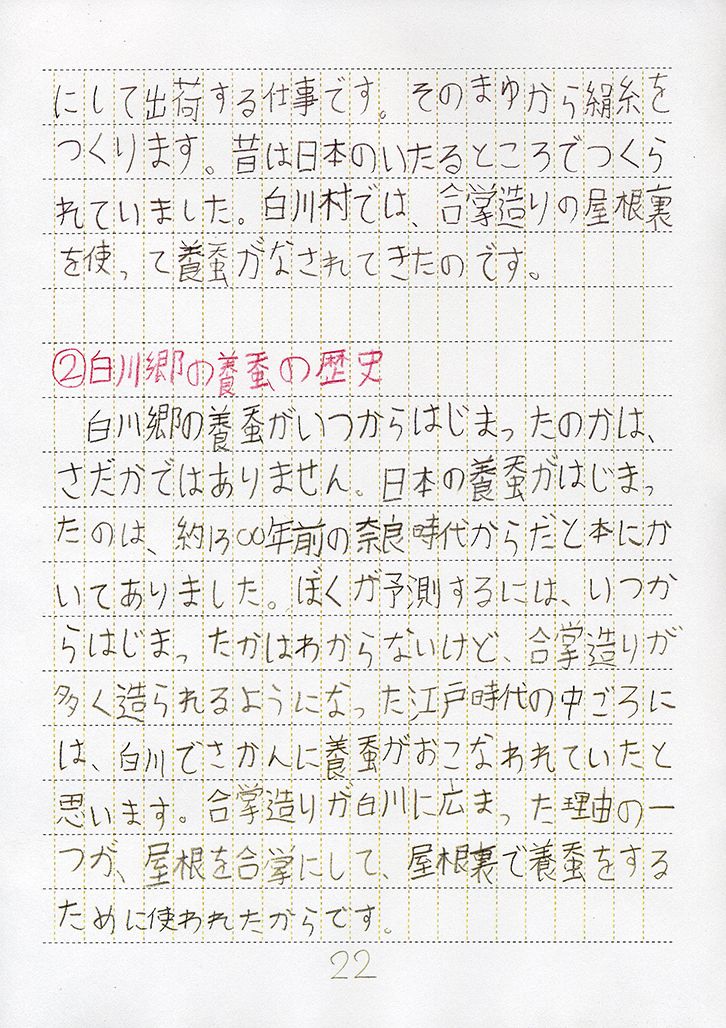 にして出荷する仕事です。そのまゆから絹糸を
つくります。昔は日本のいたるところでつくら
れていました。白川村では、合掌造りの屋根裏
を使って養蚕がなされてきたのです。
②白川郷の養蚕の歴史
白川郷の養蚕がいつからはじまったのかは、
さだかではありません。日本の養蚕がはじまっ
たのは、約1300年前の奈良時代からだと本にか
いてありました。ぼくが予測するには、いつか
らはじまったかはわからないけど、合掌造りが
多く造られるようになった江戸時代の中ごろに
は、白川でさかんに養蚕がおこなわれていたと
思います。合掌造りが白川に広まった理由の一
つが、屋根を合掌にして、屋根裏で養蚕をする
ために使われたからです。
22